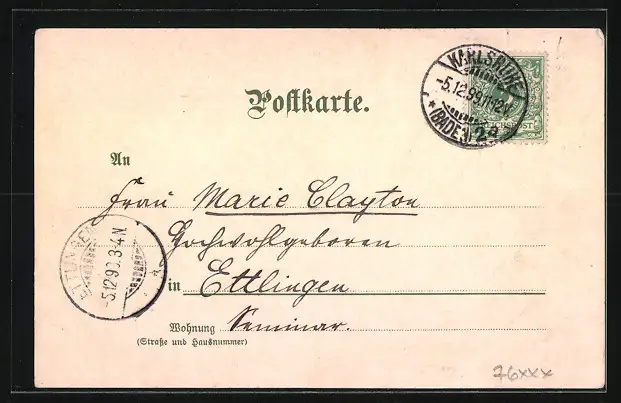 KARLSRUHE
-5.12.99.11-12V
* (BADEN) 2a
REICHSPOST
Postkarte.
An
Frau Marie Clayton
Hochwohlgeboren
ETTLINGEN
-5.12.99.3-4N
in Ettlingen
Wohnung Seminar.
(Straße und Hausnummer)
76xxx